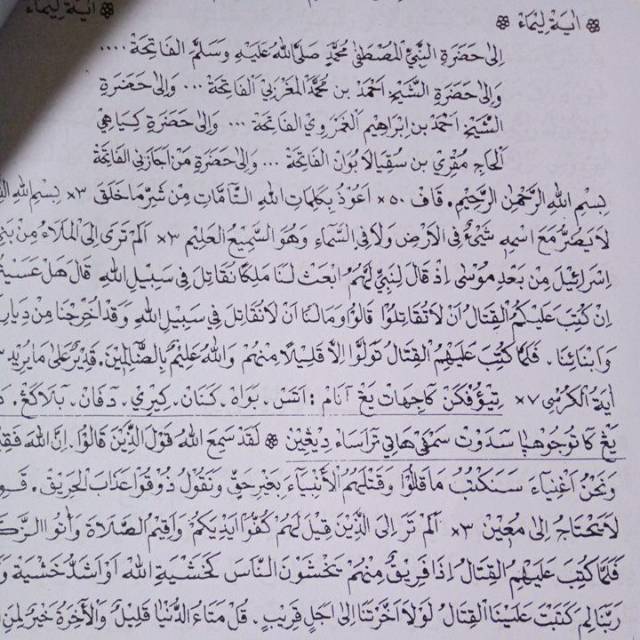 اية ليماء
إلى حضرة النبي المصطفى محمد صلى الله عليه وسلم الفاتحة ....
وإلى حضرة الشيخ احمد بن محمد المغربي الفاتحة ... وإلى حضرة
الشيخ احمد بن ابراهيم الغمروي الفاتحة ... وإلى حضرة كياهي
الحاج مقري بن سفيالا بوان الفاتحة ... وإلى حضرة من اجازني الفاتحة
بسم الله الرحمن الرحيم. قاف ٥٠× اعوذ بكلمات الله التامات من شر ما خلق ٣× بسم الله
لا يضر مع اسمه شيئ في الارض ولا في السماء وهو السميع العليم ٣× الم ترى إلى الملاء من
اسرائيل من بعد موسى اذ قال لنبي لهم ابعث لنا ملكا نقاتل في سبيل الله قال هل
ان كتب عليكم القتال ان لا تقاتلوا قالوا ومالنا ان لا نقاتل في سبيل الله وقد اخرجنا من
وابنائنا. فلما كتب عليهم القتال تولوا الا قليلا منهم والله عليم بالظالمين. قدير على ما يريد
اية الكرسى ٧× تيؤفكن كاجهات يغ انام : اتس. بواه. كنان. كيري. دفان. بلاكغ.
يغ كا توجوهـا سدوت سمفي هاتي تراساء ديغين لقد سمع الله قول الذين قالوا. ان الله
ونحن اغنياء سنكتب ما قالوا وقتلهم الأنبياء بغير حق ونقول ذوقوا عذاب الحريق.
لا تحتاج الى معين ٣× الم تر الى الذين قيل لهم كفوا ايديكم واقيموا الصلاة وأتوا
فلما كتب عليهم القتال اذا فريق منهم يخشون الناس كخشية الله او اشد خشية
ربنا لم كتبت علينا القتال لولا اخرتنا الى اجل قريب. قل متاع الدنيا قليل والآخرة خير